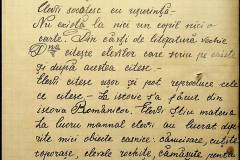 Elevii socotesc cu ușurință.
Nu există la nici un copil nici o
carte. Din cărți de literatură veche
D-na citește elevilor care scriu pe caiete
și după aceștea citesc.—
Elevii citesc ușor și pot reproduce cele
ce citesc.— La istorie s'a făcut din
istoria Românilor. Elevii știu materia.
La lucru manual elevii au lucrat dife
rite mici obiecte casnice: cămisoare, cutiute
coporașe, elevele rochite, cămășițe pentru